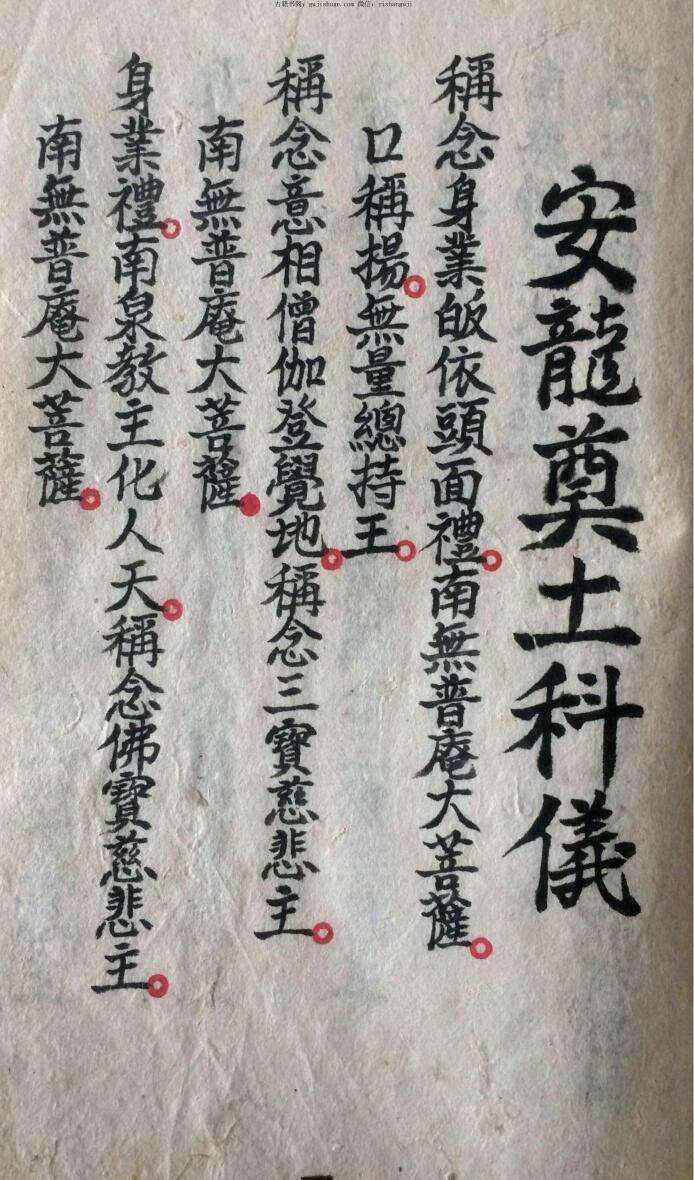 古籍书阁：gujishuge.com 微信：yishanguji
安龍奠土科儀
稱念身業皈依頭面禮。南無普庵大菩薩。
口稱揚。無量總持王。
稱念意相僧伽登覺地。稱念三寶慈悲主。
南無普庵大菩薩。
身業禮。南泉教主化人天。稱念佛寶慈悲主。
南無普庵大菩薩。